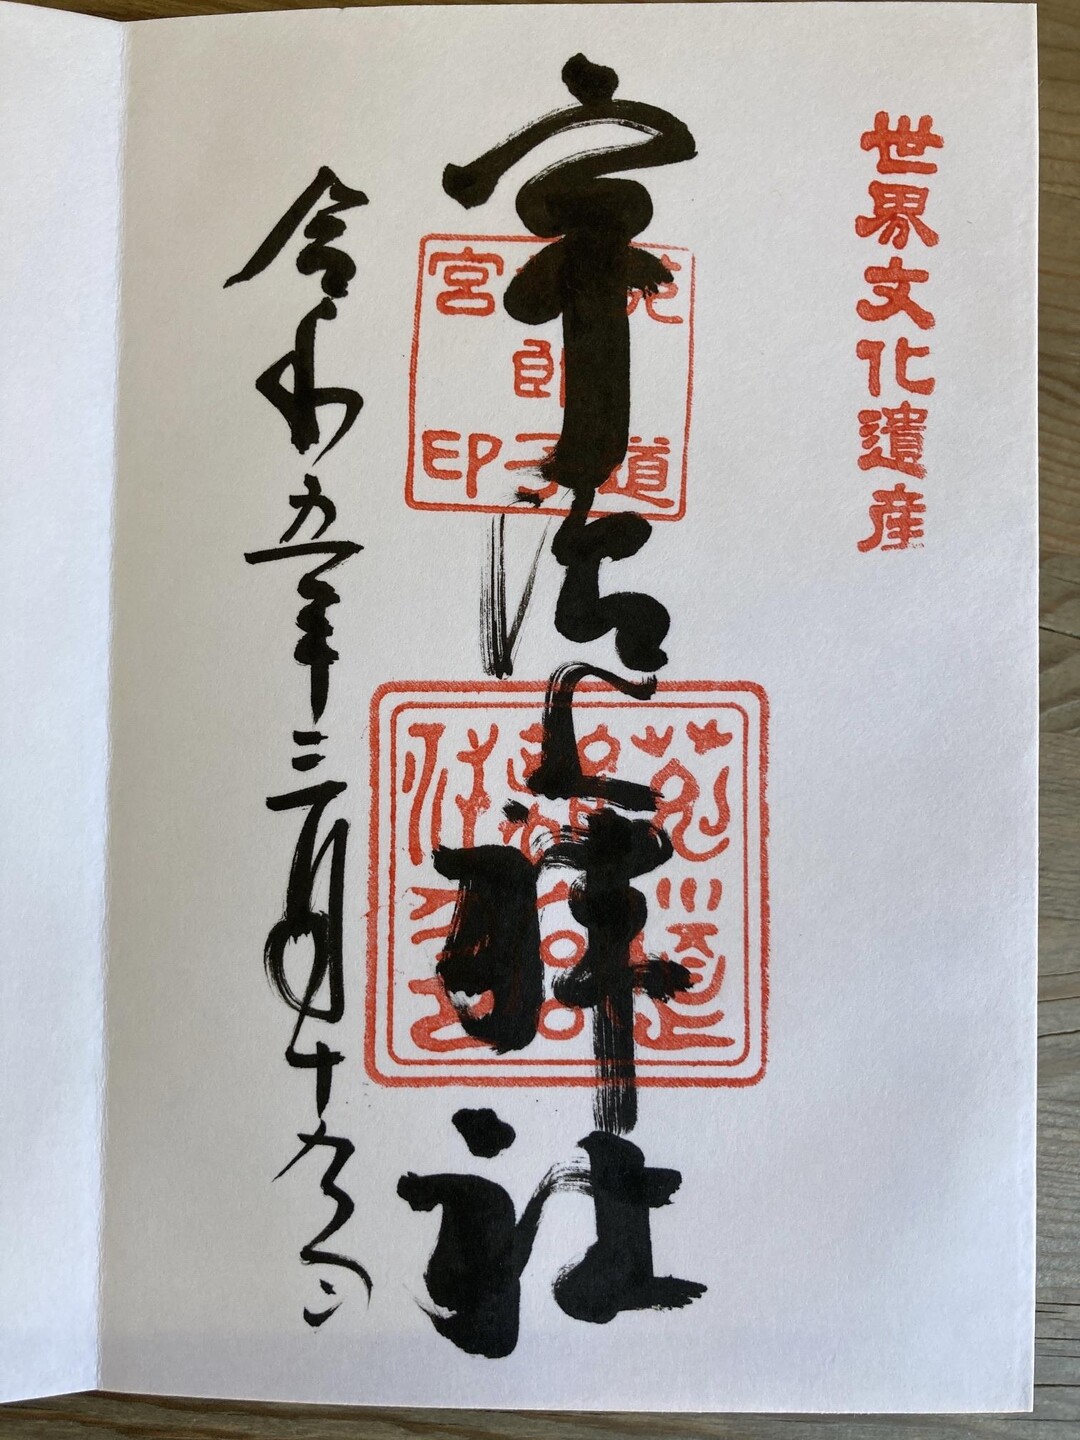 世界文化遺産
宇治上神社
菟道
郎子
宮印
令和五年三月十九日